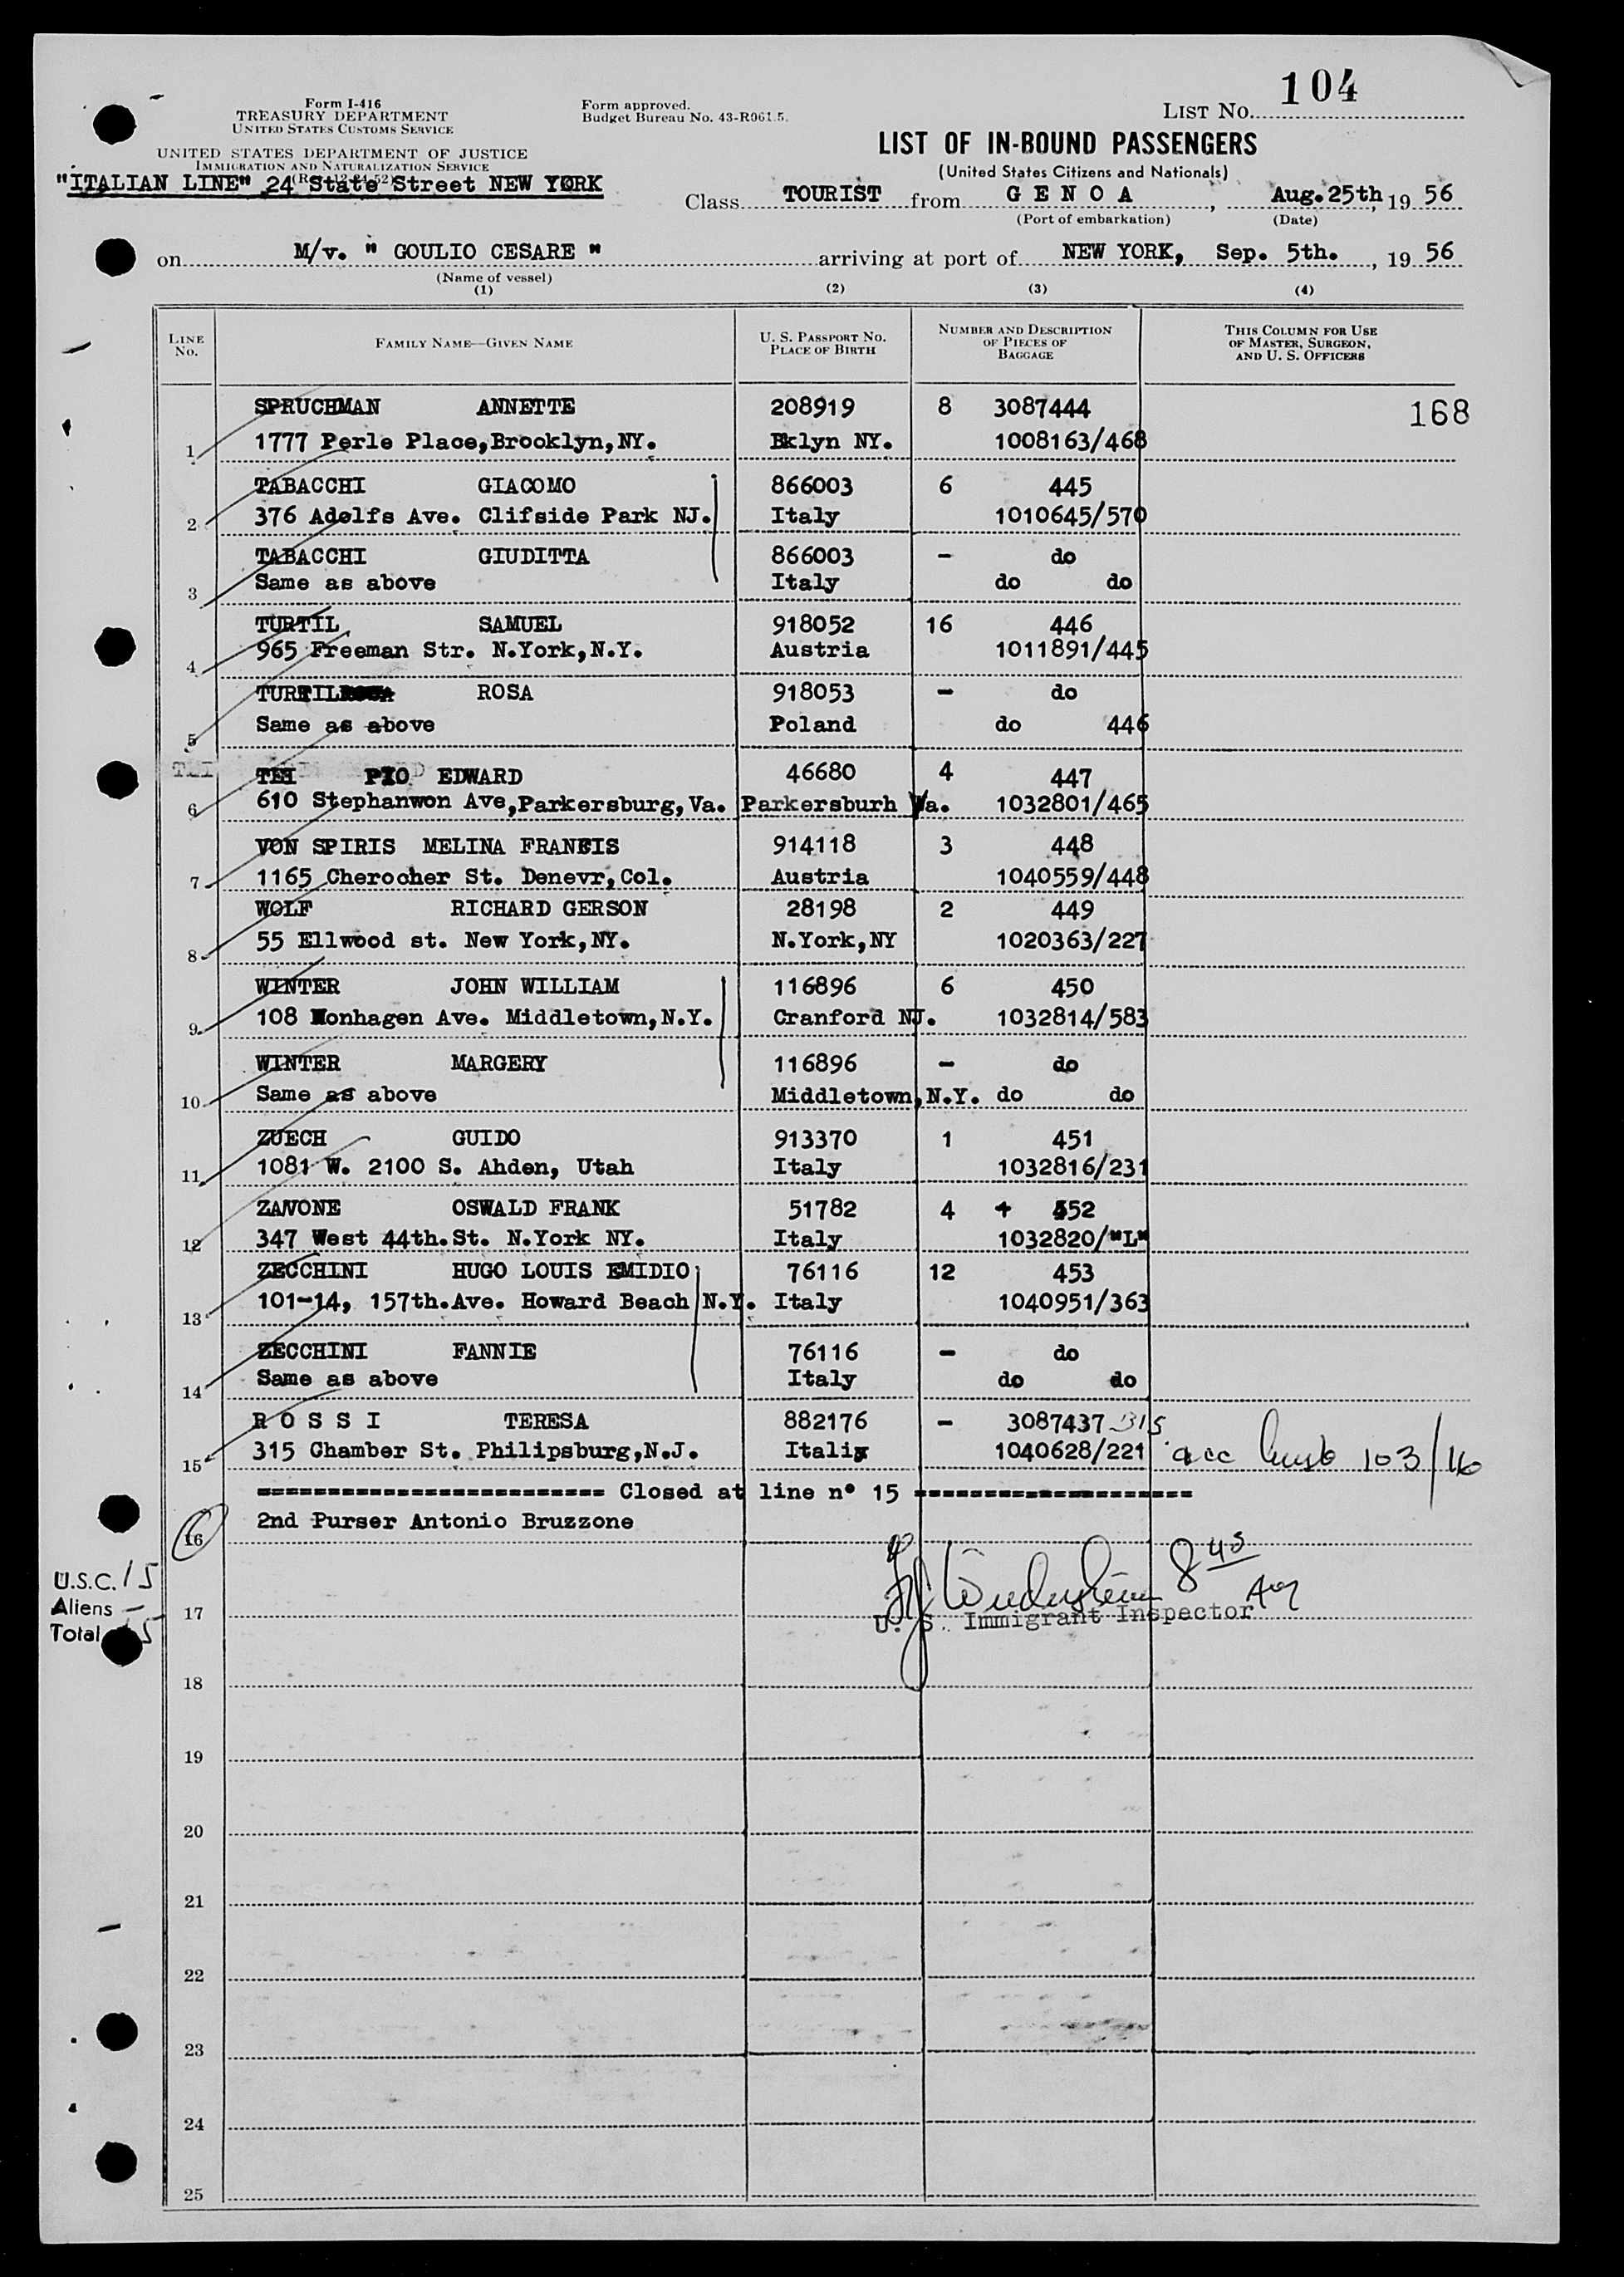 104
Form I-416
TREASURY DEPARTMENT
UNITED STATES CUSTOMS SERVICE
Form approved.
Budget Bureau No. 43-R061.5.
LIST No.
LIST OF IN-BOUND PASSENGERS
(United States Citizens and Nationals)
UNITED STATES DEPARTMENT OF JUSTICE
IMMIGRATION AND NATURALIZATION SERVICE
"ITALIAN LINE" 24 State Street NEW YORK
Class TOURIST from G E N O A , Aug. 25th, 19 56
(Port of embarkation) (Date)
on M/v. " GOULIO CESARE " arriving at port of NEW YORK, Sep. 5th. , 19 56
(Name of vessel)
(1) (2) (3) (4)
LINE No. FAMILY NAME—GIVEN NAME U. S. PASSPORT No. PLACE OF BIRTH NUMBER AND DESCRIPTION OF PIECES OF BAGGAGE THIS COLUMN FOR USE OF MASTER, SURGEON, AND U. S. OFFICERS
SPRUCHMAN ANNETTE 208919 8 3087444 168
1 1777 Perle Place,Brooklyn,NY. Bklyn NY. 1008163/468
TABACCHI GIACOMO 866003 6 445
2 376 Adolfs Ave. Clifside Park NJ. Italy 1010645/570
TABACCHI GIUDITTA 866003 - do
3 Same as above Italy do do
TURTIL SAMUEL 918052 16 446
4 965 Freeman Str. N.York,N.Y. Austria 1011891/445
TURTIL ROSA 918053 - do
5 Same as above Poland do 446
TEI PIO EDWARD 46680 4 447
6 610 Stephanwon Ave,Parkersburg,Va. Parkersburh Va. 1032801/465
VON SPIRIS MELINA FRANCIS 914118 3 448
7 1165 Cherocher St. Denevr,Col. Austria 1040559/448
WOLF RICHARD GERSON 28198 2 449
8 55 Ellwood st. New York,NY. N.York,NY 1020363/227
WINTER JOHN WILLIAM 116896 6 450
9 108 Monhagen Ave. Middletown,N.Y. Cranford NJ. 1032814/583
WINTER MARGERY 116896 - do
10 Same as above Middletown,N.Y. do do
ZUECH GUIDO 913370 1 451
11 1081 W. 2100 S. Ahden, Utah Italy 1032816/231
ZANONE OSWALD FRANK 51782 4 + 452
12 347 West 44th.St. N.York NY. Italy 1032820/"L"
ZECCHINI HUGO LOUIS EMIDIO 76116 12 453
13 101-14, 157th.Ave. Howard Beach N.Y. Italy 1040951/363
ZECCHINI FANNIE 76116 - do
14 Same as above Italy do do
R O S S I TERESA 882176 - 3087437 BIS
15 315 Chamber St. Philipsburg,N.J. Italia 1040628/221 acc husb 103/16
======================== Closed at line n° 15 ====================
2nd Purser Antonio Bruzzone
16
8 45
U.S.C. 15
Aliens —
17 U. S. Immigrant Inspector
Total 15
18
19
20
21
22
23
24
25